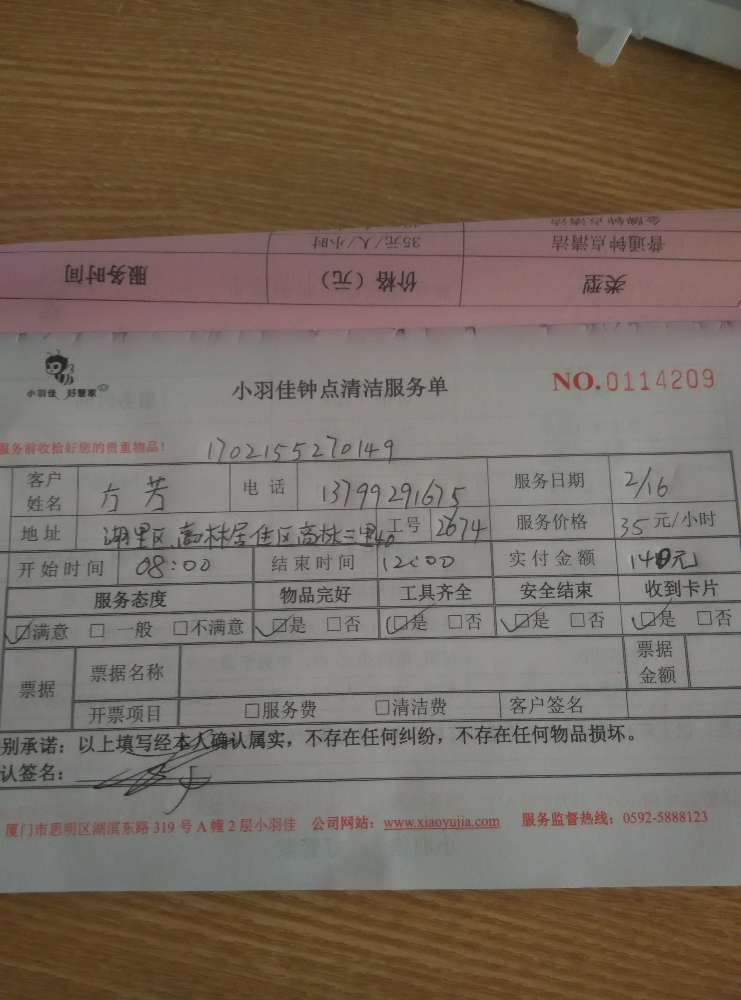 金牌钟点清洁
普通钟点清洁 35元/人/小时
类型 价格（元） 服务时间
小羽佳 好管家
小羽佳钟点清洁服务单
NO.0114209
服务前收拾好您的贵重物品！ 1702155270149
客户姓名 方芳 电话 13799291675 服务日期 2/16
地址 湖里区高林居住区高林三里40 工号 2674 服务价格 35元/小时
开始时间 08:00 结束时间 12:00 实付金额 140元
服务态度 物品完好 工具齐全 安全结束 收到卡片
☑满意 □一般 □不满意 ☑是 □否 ☑是 □否 ☑是 □否 ☑是 □否
票据 票据名称 票据金额
开票项目 □服务费 □清洁费 客户签名
别承诺：以上填写经本人确认属实，不存在任何纠纷，不存在任何物品损坏。
认签名：
厦门市思明区湖滨东路319号A幢2层小羽佳 公司网站：www.xiaoyujia.com 服务监督热线：0592-5888123